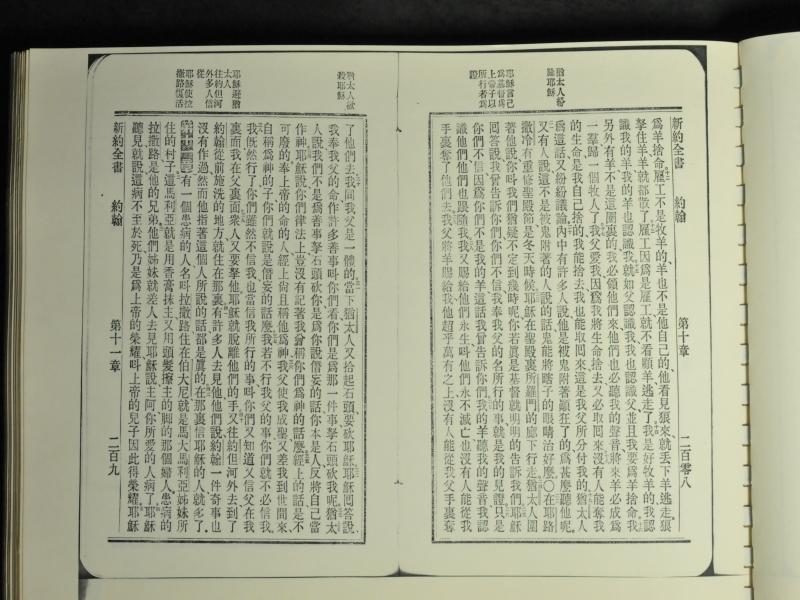 猶太人紛
論耶穌
耶穌言己
爲基督爲
上帝子以
所行者爲
證
新約全書 約翰 第十章 二百零八
爲羊捨命雇工不是牧羊的羊也不是他自己的他看見狼來就丟下羊逃走狼
拏住羊羊就都散了雇工因爲是雇工就不看顧羊逃走了我是好牧羊的我認
識我的羊我的羊也認識我就如父認識我我也認識父並且我要爲羊捨命我
另外有羊不是這圈裏的我必領他們來他們也必聽我的聲音將來羊必成爲
一羣歸一個牧人了我父愛我因爲我將生命捨去又必取囘來沒有人能奪我
的生命是我自己捨的我能捨去我也能取囘來這是我父所分付我的猶太人
爲這話又紛紛議論內中有許多人說他是被鬼附著顚狂了的爲甚麼聽他呢
又有人說這不是被鬼附著的人說的話鬼能將瞎子的眼睛治好麼○在耶路
撒冷有重修聖殿節是冬天時候耶穌在聖殿裏所羅門的廊下行走猶太人圍
著他說你叫我們猶疑不定到幾時呢你若眞是基督就明明的告訴我們耶穌
囘答說我曾告訴你們你們不信我奉我父的名所行的事就是我的見證只是
你們不信因爲你們不是我的羊這話我曾告訴你們我的羊聽我的聲音我認
識他們他們也跟隨我我又賜給他們永生叫他們永不滅亡也沒有人能從我
手裏奪了他們去我父將羊賜給我他超乎萬有之上沒有人能從我父手裏奪
猶太人欲
殺耶穌
耶穌避猶
太人
往約但河
外多人信
從
耶穌使拉
撒路復活
了他們去我同我父是一體的當下猶太人又拾起石頭要砍耶穌耶穌囘答說
我奉我父的命作許多善事叫你們看你們是爲那一件事拏石頭砍我呢猶太
人說我們不是爲善事拏石頭砍你是爲你說僭妄的話你本是人反將自己當
作神耶穌說你們律法上豈沒有記著我曾稱你們爲神的話麼經上的話是不
可廢的奉上帝的命的人經上尙且稱他爲神我父使我成聖又差我到世間來
自稱爲神的子你們就說是僭妄的話麼我若不行我父的事你們就不必信我
我旣然行了你們雖然不信我也當信我所行的事叫你們又知道又信父在我
裏面我在父裏面衆人又要拏他耶穌就脫離他們的手又往約但河外去到了
約翰從前施洗的地方就住在那裏有許多人去見他他們說約翰一件奇事也
沒有作過然而他指著這個人所說的話都是眞的在那裏信耶穌的人就多了
有一個患病的人名叫拉撒路住在伯大尼就是馬大馬利亞姊妹所
住的村子這馬利亞就是用香膏抹主又用頭髮擦主的脚的那個婦人患病的
拉撒路是他的兄弟他們姊妹就差人去見耶穌說主阿你所愛的人病了耶穌
聽見就說這病不至於死乃是爲上帝的榮耀叫上帝的兒子因此得榮耀耶穌
新約全書 約翰 第十一章 二百九